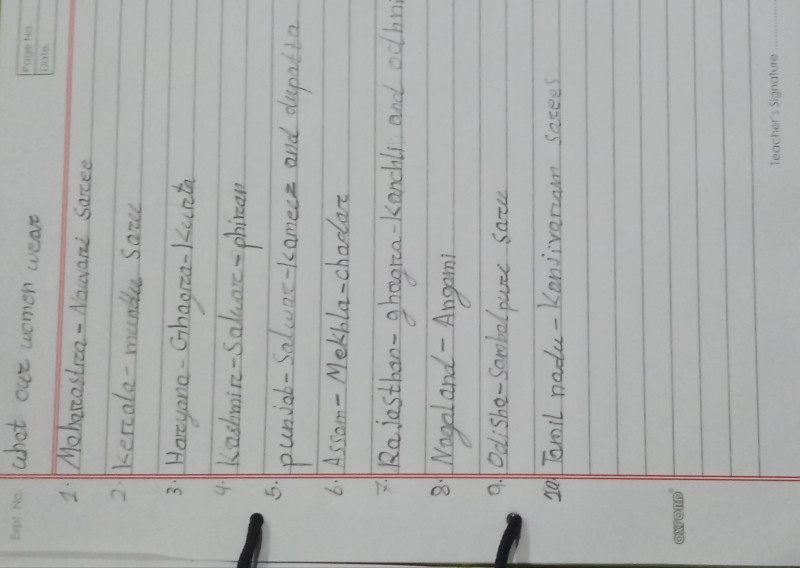 Page No.
Date
Expt. No.
What our women wear
1. Maharastra - Nauvari saree
2. Kerala - mundu saree
3. Haryana - Ghagra - Kurta
4. Kashmir - Salwar - phiran
5. punjab - Salwar - Kameez and dupatta
6. Assam - Mekhla - chadar
7. Rajasthan - ghagra - Kanchli and odhni
8. Nagaland - Angami
9. Odisha - Sambalpuri saree
10. Tamil nadu - Kanjivaram sarees
OXFORD
Teacher's Signature